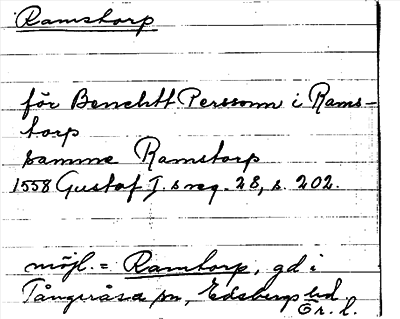 Ramstorp
för Benchtt Perssonn i Rams-
torp
samme Ramstorp
1558 Gustaf I. s reg. 28, s. 202.
möjl. = Ramtorp, gd i
Tångeråsa sn, Edsbergs hd.
Ör. l.